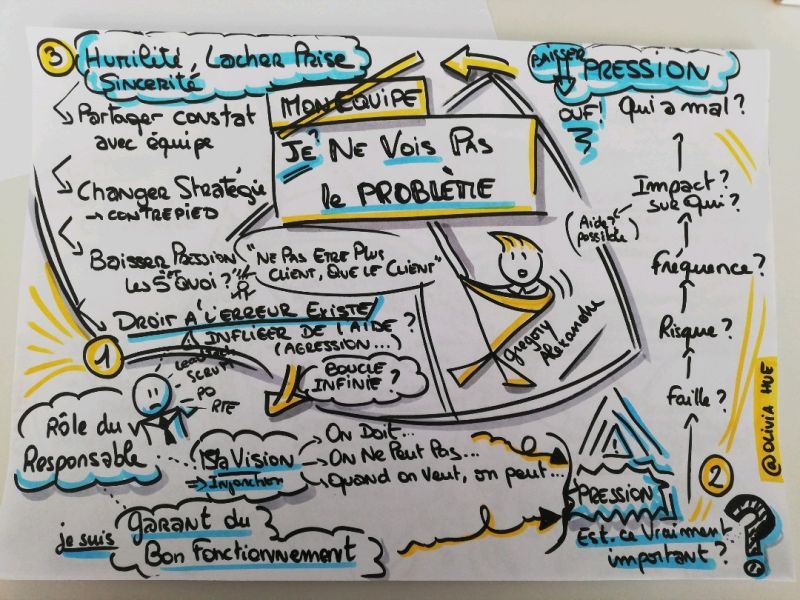 MON EQUIPE
JE NE VOIS PAS
le PROBLÈME
"NE PAS ETRE PLUS
CLIENT, QUE LE CLIENT"
Gregory
Alexandre
1
Rôle du
Responsable
SCRUM
PO
RTE
Sa Vision
⇒ Injonction
→ On Doit...
→ On Ne Peut Pas...
→ Quand on Veut, on peut...
je suis garant du
Bon Fonctionnement
BOUCLE
INFINIE ?
2
PRESSION
Est-ce Vraiment
important ?
?
Faille ?
Risque ?
Fréquence ?
Impact ?
sur Qui ?
(Aide ?
possible)
Qui a mal ?
BAISSER PRESSION
OUF !
3 Humilité, Lacher Prise
Sincerité
Partager constat
avec équipe
Changer Stratégie
→ CONTREPIED
Baisser Pression
et
les 5 "Quoi" ?
DROIT A L'ERREUR EXISTE
INFLIGER DE L'AIDE ?
(AGRESSION...)
@OLIVIA HUE